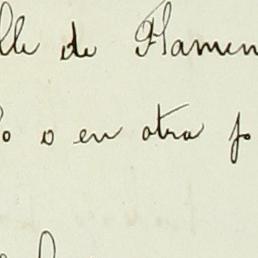 lle de Flamen
o o en otra fo